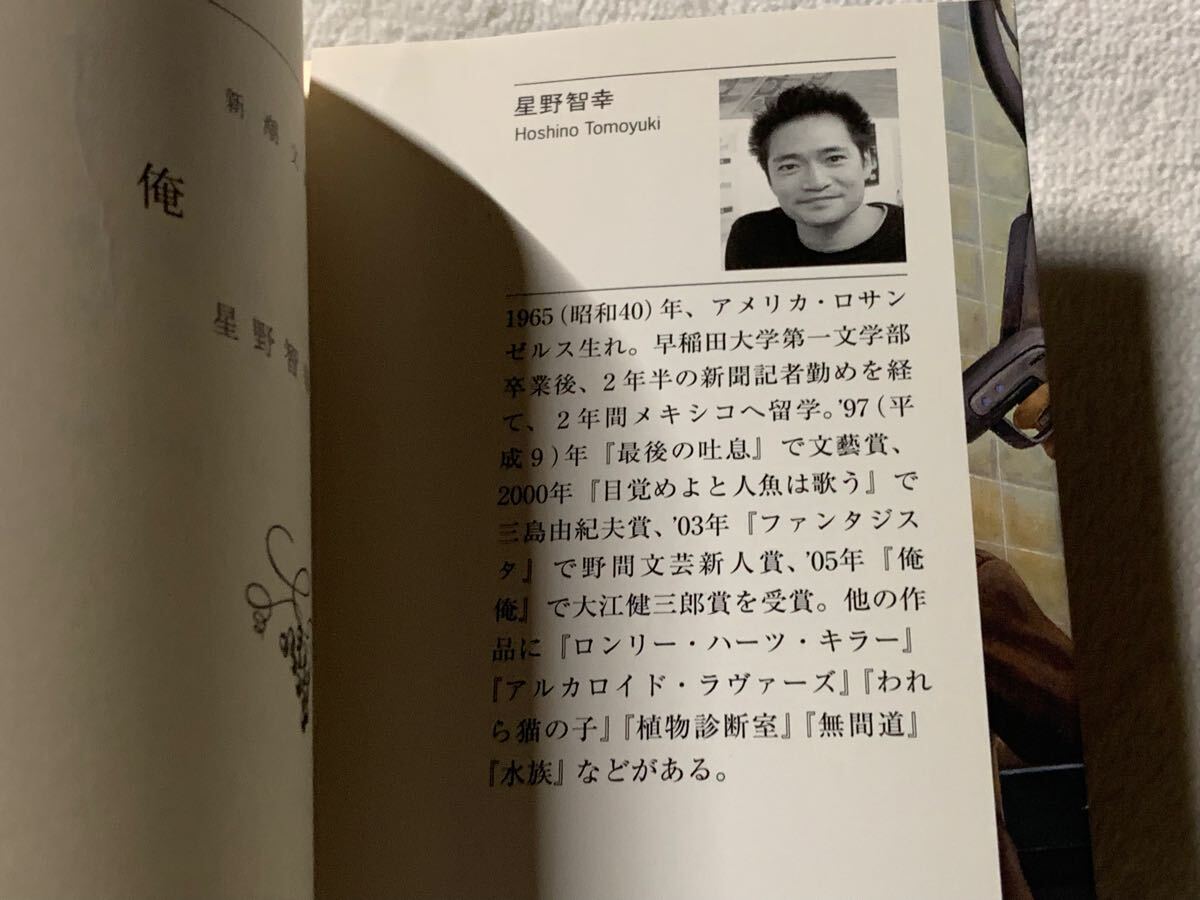 新潮文
俺
星野智
星野智幸
Hoshino Tomoyuki
1965(昭和40)年、アメリカ・ロサン
ゼルス生れ。早稲田大学第一文学部
卒業後、2年半の新聞記者勤めを経
て、2年間メキシコへ留学。'97(平
成9)年『最後の吐息』で文藝賞、
2000年『目覚めよと人魚は歌う』で
三島由紀夫賞、'03年『ファンタジス
タ』で野間文芸新人賞、'05年『俺
俺』で大江健三郎賞を受賞。他の作
品に『ロンリー・ハーツ・キラー』
『アルカロイド・ラヴァーズ』『われ
ら猫の子』『植物診断室』『無間道』
『水族』などがある。